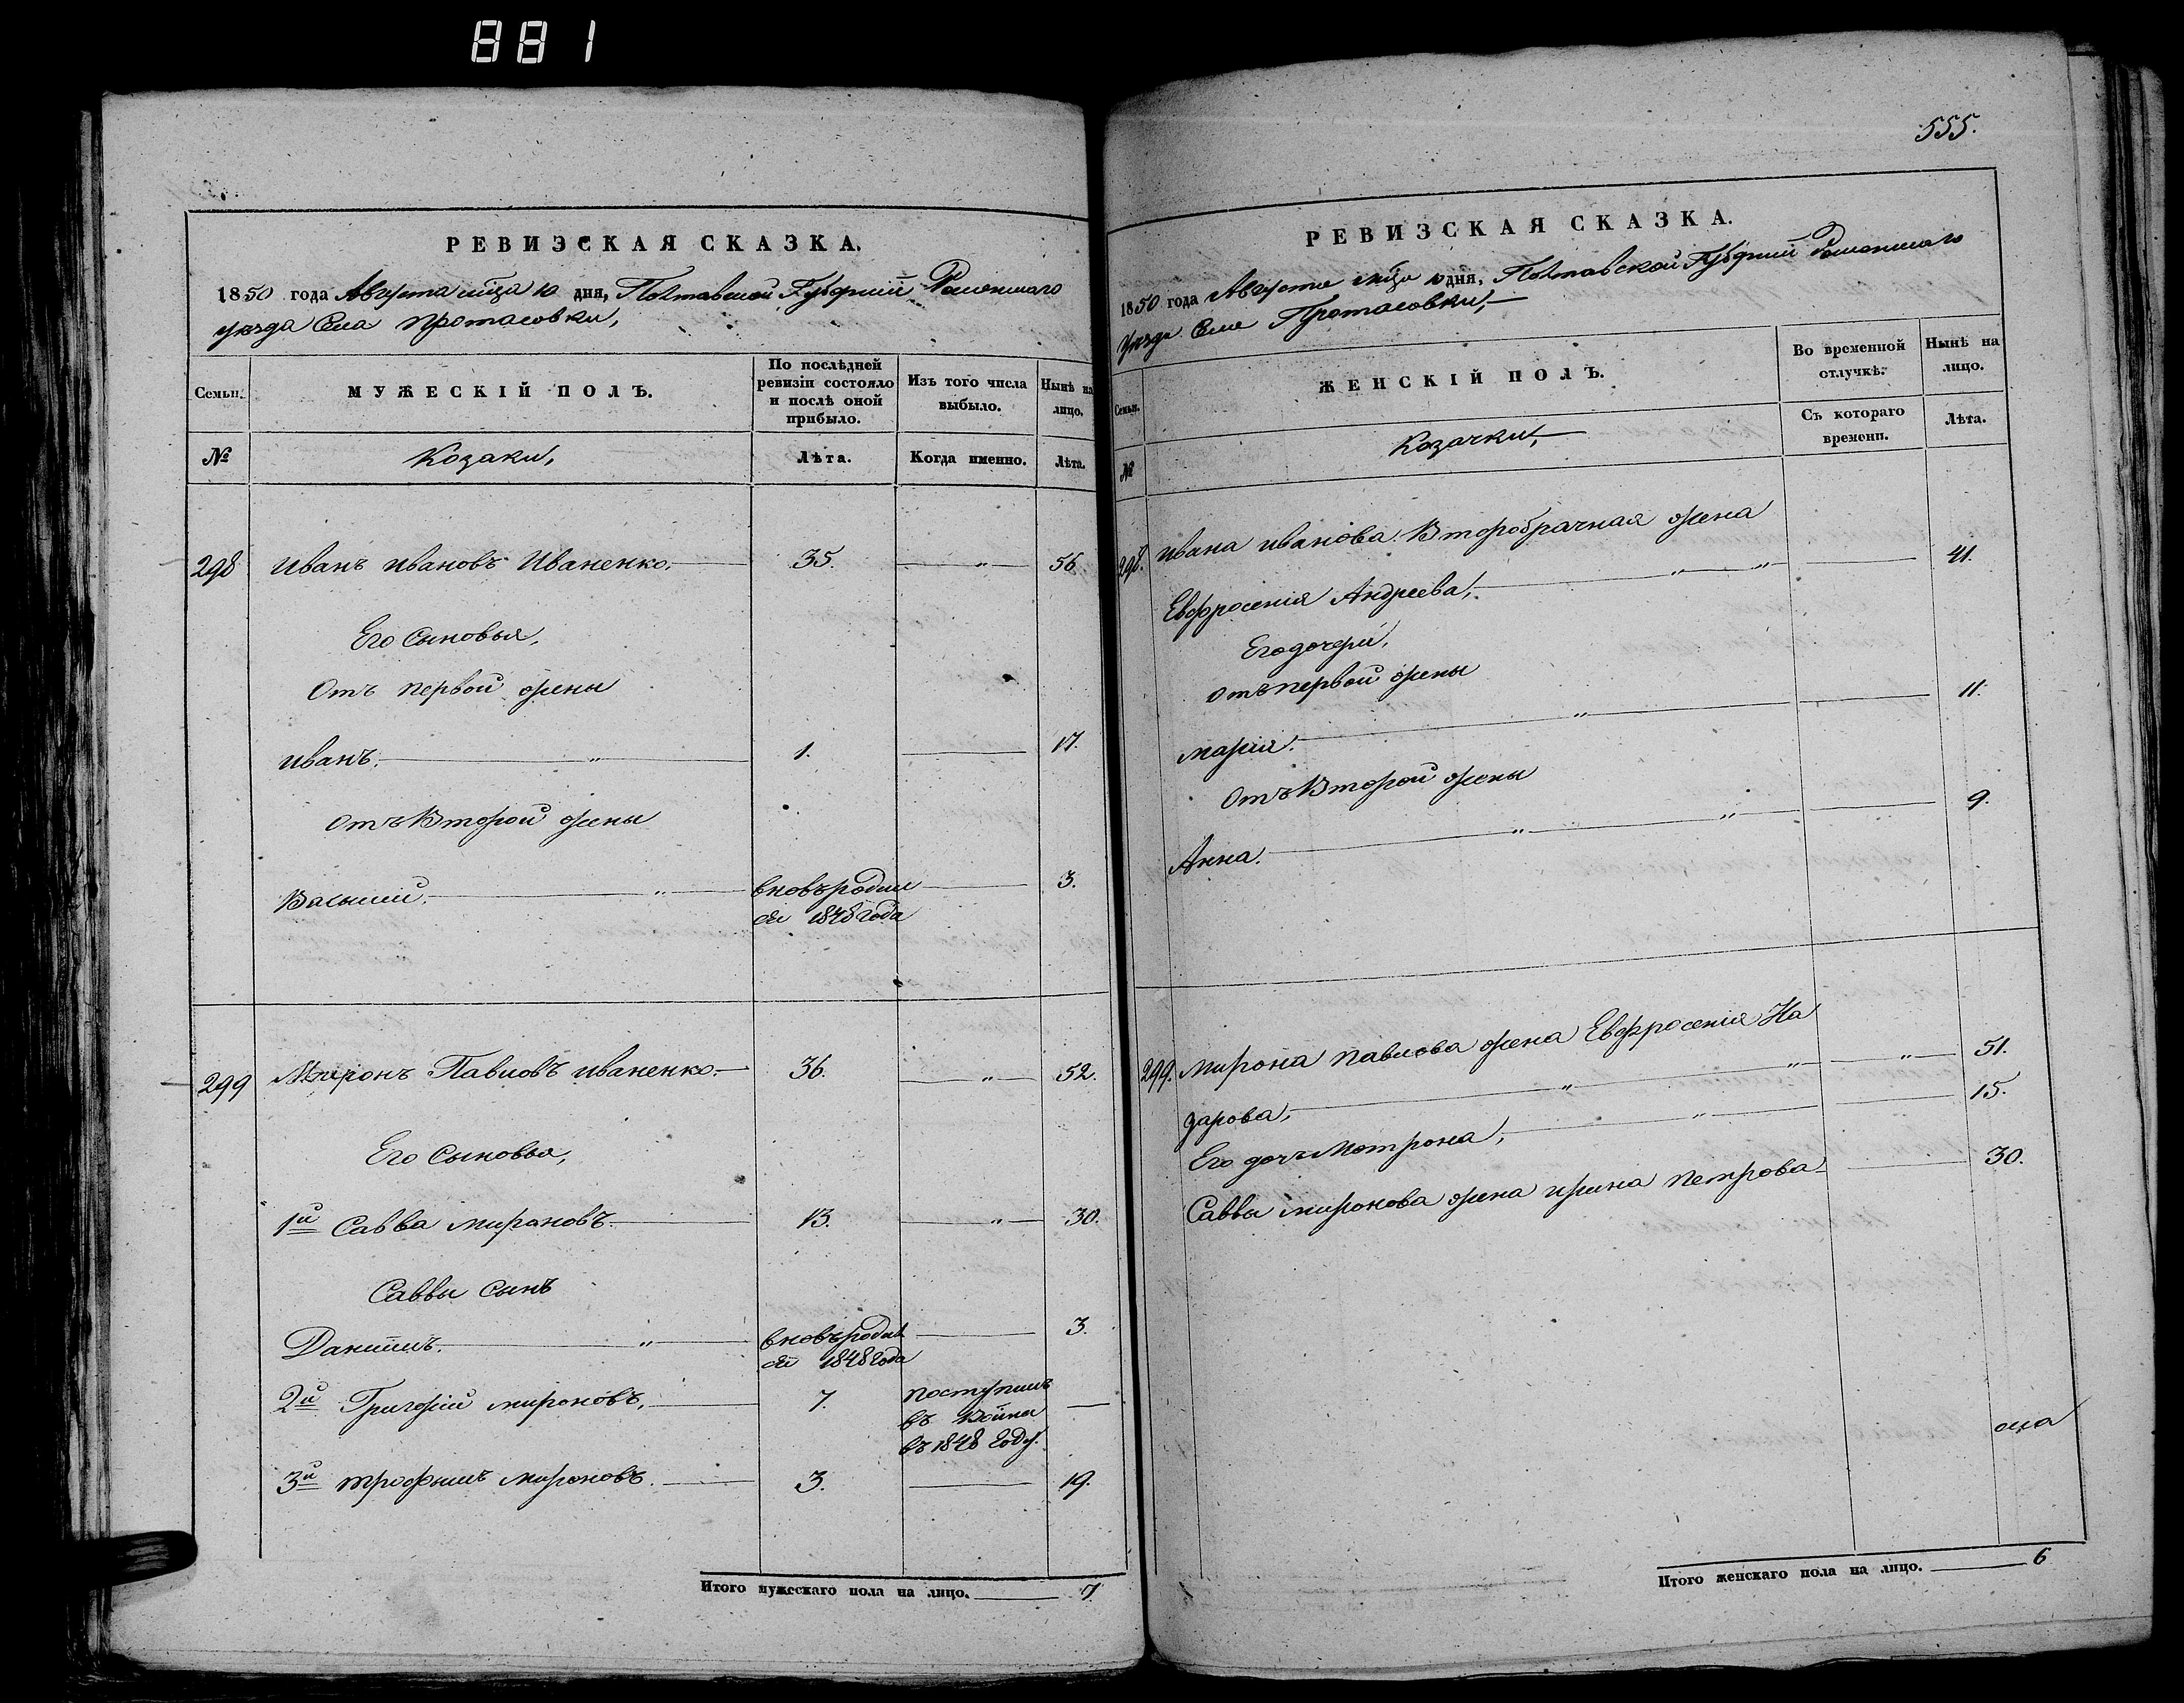 881
РЕВИЗСКАЯ СКАЗКА.
1850 года Августа мца 10 дня, Полтавской Губерніи Роменскаго
уезда Села Протасовки,
Семьи.
МУЖЕСКІЙ ПОЛЪ.
По послѣдней ревизіи состояло и послѣ оной прибыло.
Изъ того числа выбыло.
Нынѣ на лицо.
№
Козаки,
Лѣта.
Когда именно.
Лѣта.
298 Иванъ Ивановъ Иваненко. 35. „ 56
Его Сыновья,
Отъ первой жены
Иванъ. „ 1. 17.
Отъ Второй жены
Василий. „ вновь роди 3.
ся 1848 года
299 Миронъ Павловъ Иваненко. 36. „ 52.
Его Сыновья,
1й Савва Мироновъ. 13. „ 30.
Саввы Сынъ
Даниилъ. „ вновь родил 3.
ся 1848 года
2й Григорій Мироновъ. 7. поступилъ —
въ
въ 1848 году.
3й Трофимъ Мироновъ. 3. 19.
Итого мужескаго пола на лицо. 7
555.
РЕВИЗСКАЯ СКАЗКА.
1850 года Августа мца 10 дня, Полтавской Губерніи Роменскаго
Уезда Села Протасовки,
Семьи.
ЖЕНСКІЙ ПОЛЪ.
Во временной отлучкѣ.
Нынѣ на лицо.
№
Козачки,
Съ котораго времени.
Лѣта.
298. Ивана Иванова Второбрачная жена
Евфросенія Андреева, „ „ 41.
Его дочери,
отъ первой жены
Марія. „ 11.
Отъ Второй жены
Анна. „ „ 9.
299. Мирона Павлова жена Евфросенія На
зарова, „ „ „ 51.
Его дочь Мотрона, „ 15.
Саввы Миронова жена Ирина Петрова 30.
Итого женскаго пола на лицо. 6